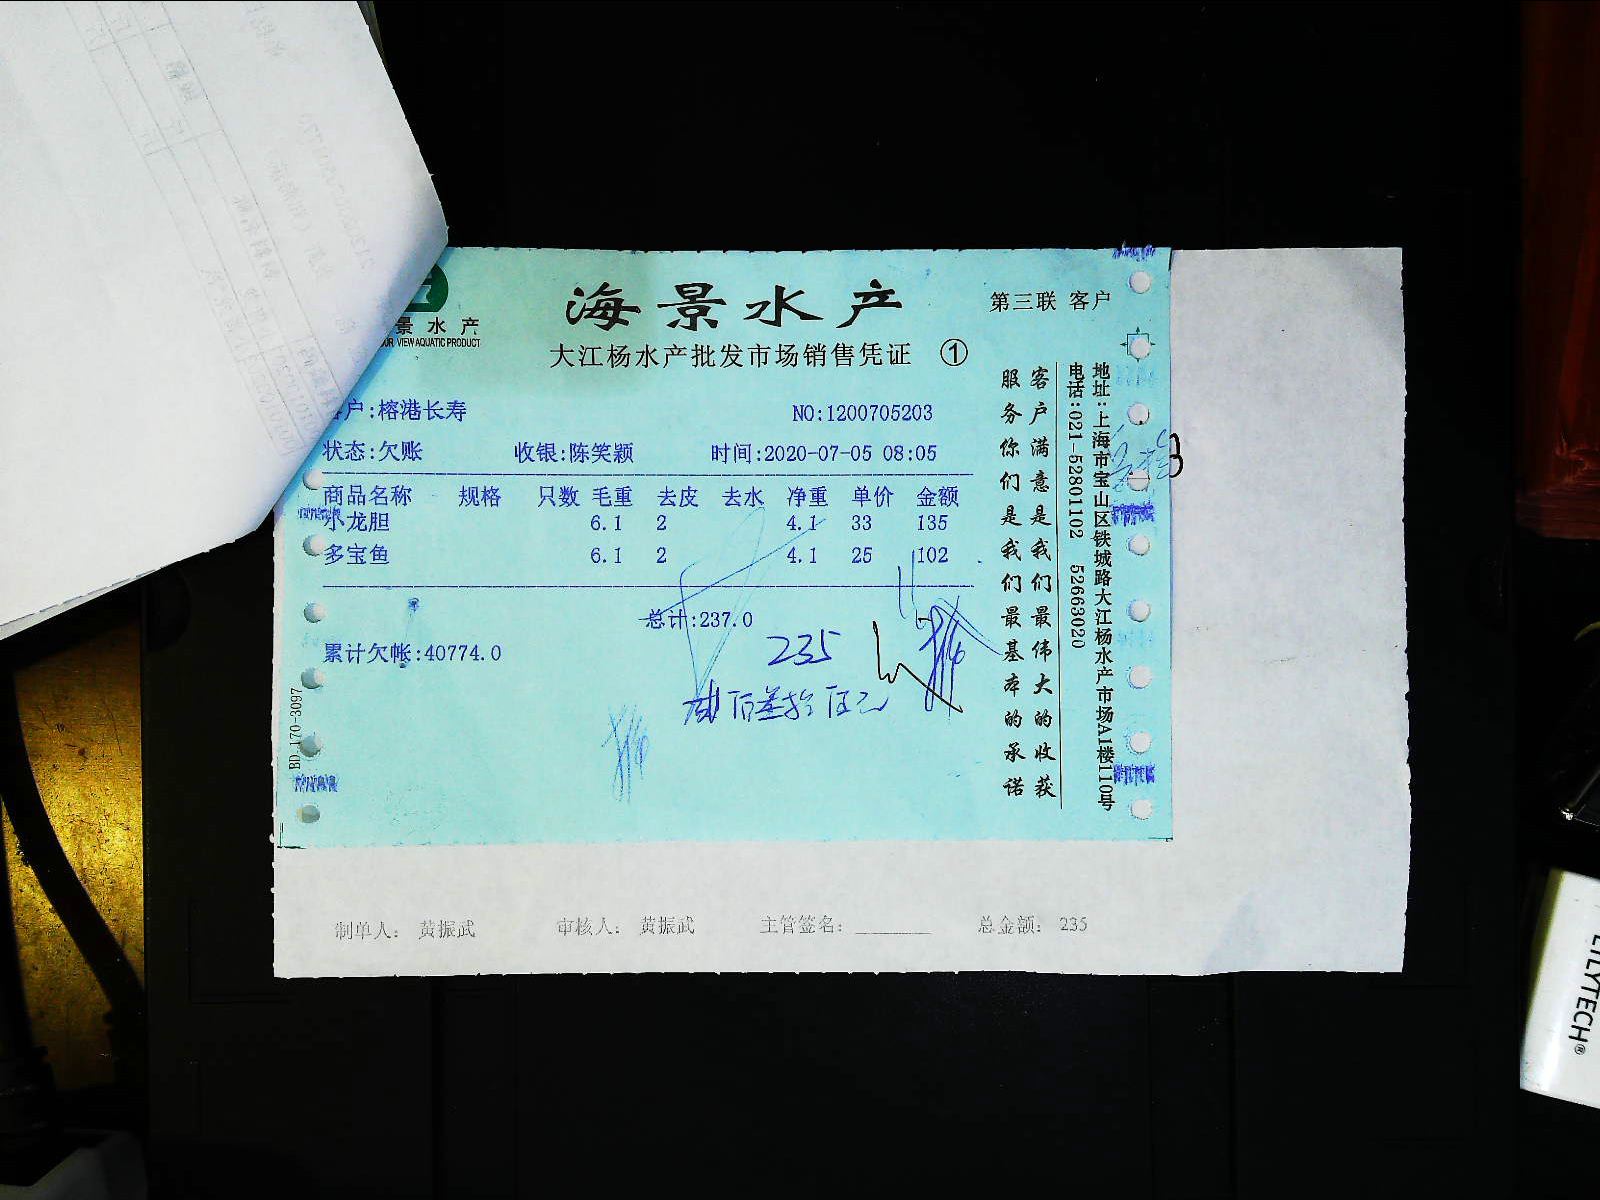 景水产
VIEW AQUATIC PRODUCT
海景水产
第三联 客户
大江杨水产批发市场销售凭证 ①
户:榕港长寿
NO:1200705203
状态:欠账 收银:陈笑颖 时间:2020-07-05 08:05
商品名称 规格 只数 毛重 去皮 去水 净重 单价 金额
小龙胆 6.1 2 4.1 33 135
多宝鱼 6.1 2 4.1 25 102
总计:237.0
累计欠帐:40774.0
235
贰佰叁拾伍元
BD.170-3097
客户满意是我们最伟大的收获
服务你们是我们最基本的承诺
地址:上海市宝山区铁城路大江杨水产市场A1楼110号
电话:021-52801102 52663020
制单人: 黄振武 审核人: 黄振武 主管签名: 总金额: 235
LILYTECH®